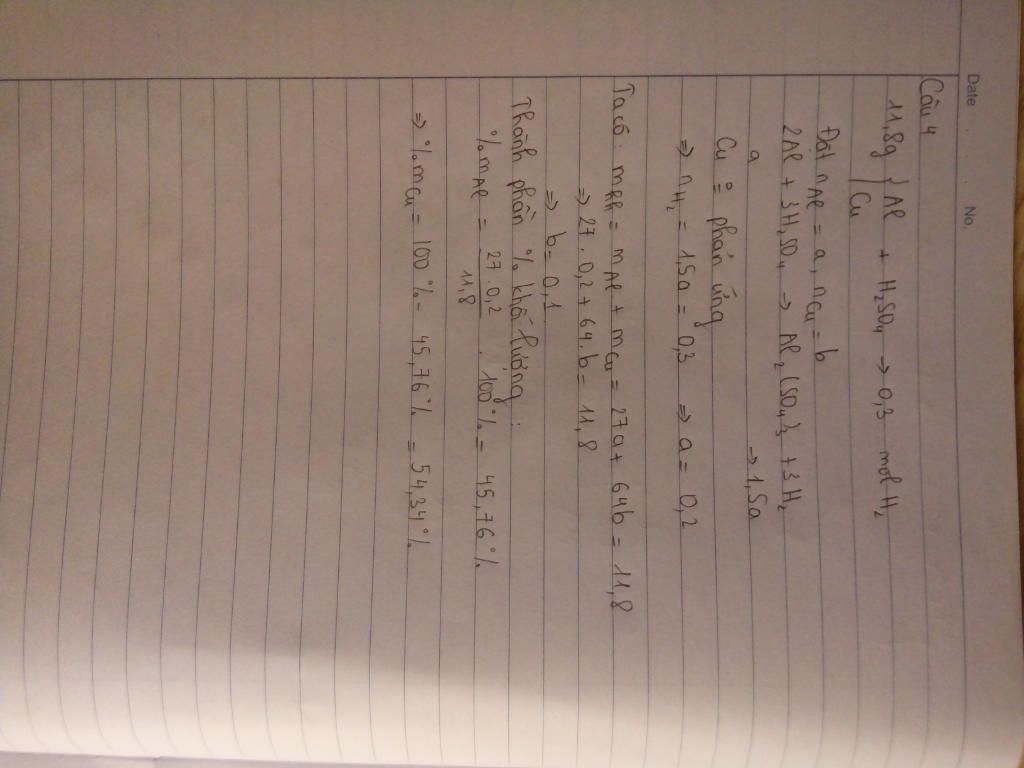 Date . . . . No.
Câu 4
11,8g { Al + H2SO4 → 0,3 mol H2
Cu
Đặt nAl = a, nCu = b
2Al + 3H2SO4 → Al2(SO4)3 + 3H2
a → 1,5a
Cu phản ứng
⇒ nH2 = 1,5a = 0,3 ⇒ a = 0,2
Ta có: = mAl + mCu = 27a + 64b = 11,8
⇒ 27 . 0,2 + 64 . b = 11,8
⇒ b = 0,1
Thành phần % khối lượng:
% mAl = 27 . 0,2 / 11,8 . 100% = 45,76%
⇒ % mCu = 100% - 45,76% = 54,34%